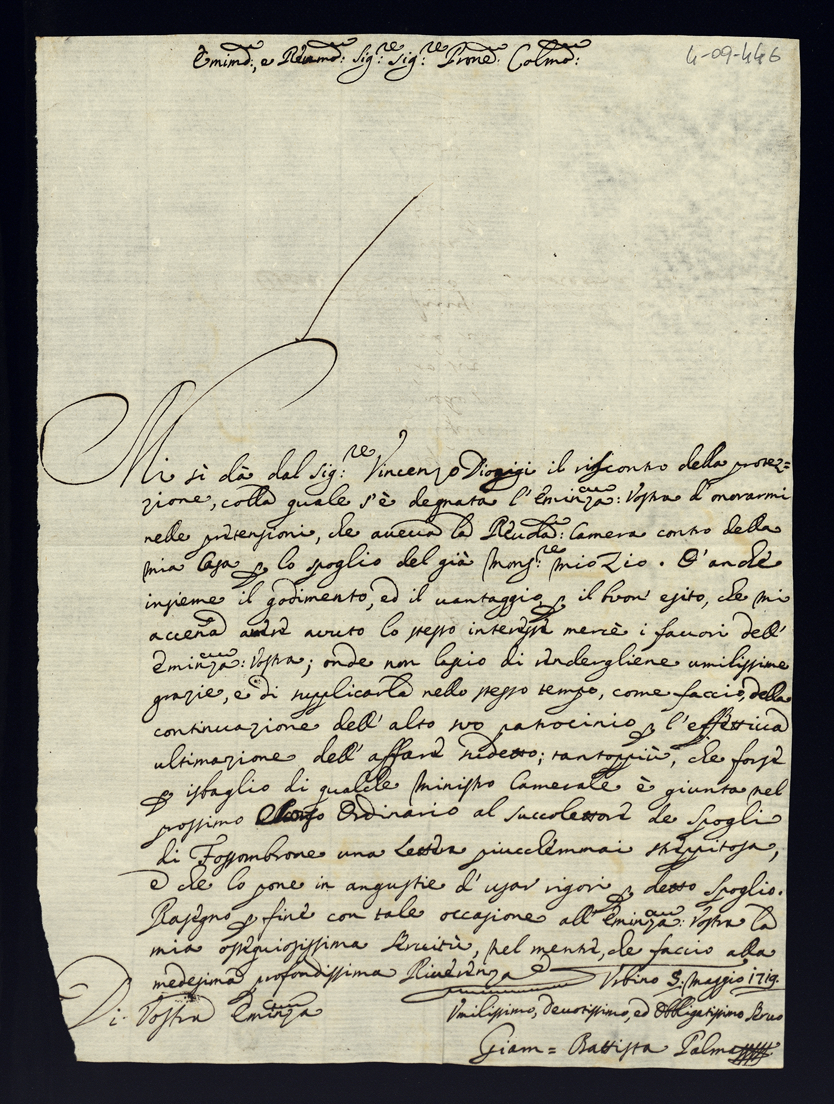 4-09-446
Emin.mo, e Rev.mo Sig.re Sig.re Pr.one Col.mo
Mi si dà dal Sig.re Vincenzo Dionigi il riscontro della protez=
zione, colla quale s'è degnata l'Eminza: Vostra d'onorarmi
nelle pretensioni, che aveva la Reu.da Camera contro della
mia Casa p lo spoglio del già Mons.re mio Zio. O' anche
insieme il godimento, ed il vantaggio p il buon' esito, che mi
accena avere avuto lo stesso interesse mercè i favori dell'
Eminza: Vostra; onde non lascio di rendergliene umilissime
grazie, e di supplicarla nello stesso tempo, come faccio, della
continuazione dell' alto suo patrocinio p l'effettiva
ultimazione dell' affare sudetto; tantoppiù, che forse
p isbaglio di qualche Ministro Camerale è giunta nel
prossimo Ordinario al Succolettore de Spogli
di Fossombrone una Lettera piucchemmai strepitosa,
e che lo pone in angustie d' usar rigori p detto spoglio.
Rasegno p fine con tale occasione all' Eminza: Vostra la
mia ossequiosissima Servitù, nel mentre, che faccio alla
medesima profondissima Riverenza Urbino 3: Maggio 1719.
Di Vostra Eminza
Umilissimo, Devotissimo, ed Obbligatissimo Servo
Giam= Battista Palma